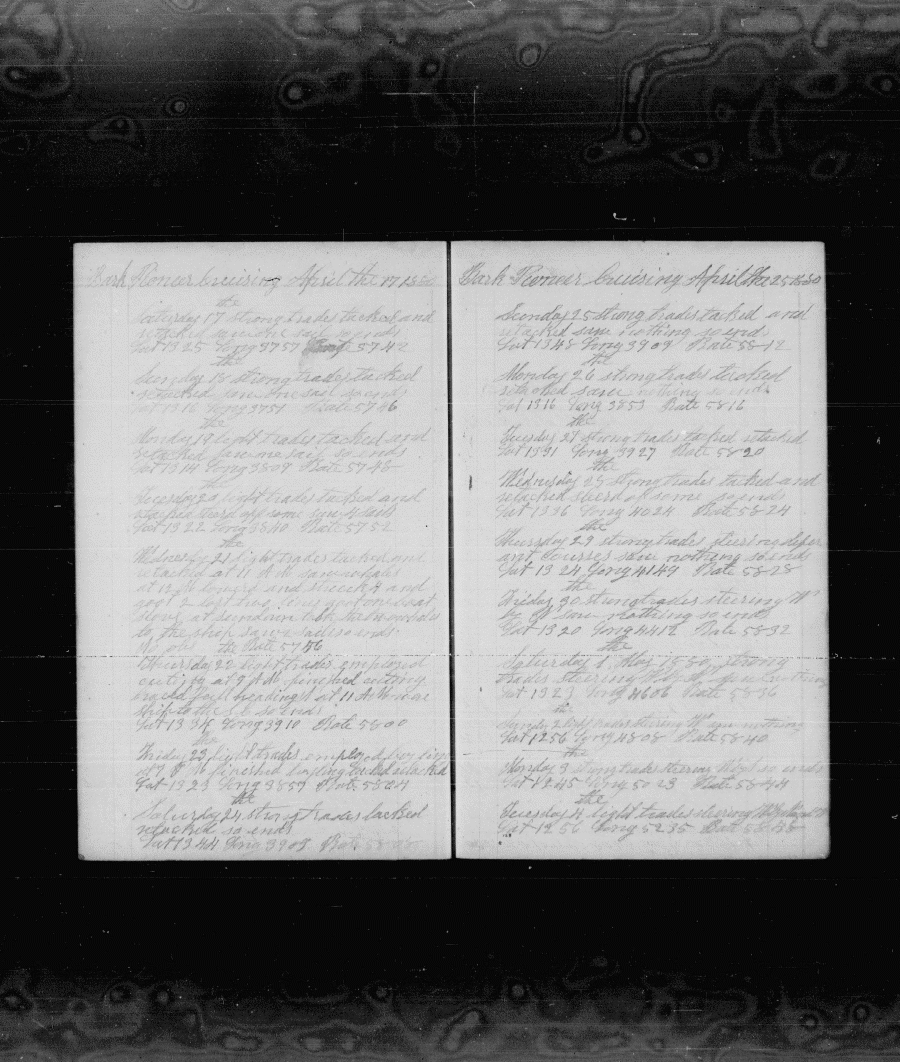 Bark Pioneer Cruising April the 17 1880
the
Saturday 17 strong trades tacked and
retacked saw one sail so ends
Lat 13 25 Long 37 57 57 42
the
Sunday 18 strong trades tacked
retacked saw one sail so ends
Lat 13 16 Long 37 51 Rate 57 46
the
Monday 19 light trades tacked and
retacked saw one sail so ends
Lat 13 14 Long 38 09 Rate 57 48
the
Tuesday 20 light trades tacked and
some
Lat 13 22 Long 38 40 Rate 57 52
the
Wednesday 21 light trades tacked and
retacked at 11 A M saw whales
at 12 M lowerd and struck 4 and
got 2 lost two boat
at sundown took the two whales
to the ship saw 2 sails so ends
No obs the Rate 57 56
Thursday 22 light trades employed
cuting at 9 A M finished cuting
heading at 11 A M
ship to the so ends
Lat 13 34 Long 39 10 Rate 58 00
the
Friday 23 light trades employed boyling
at P M finished boyling tacked retacked
Lat 13 23 Long 38 59 Rate 58 04
the
Saturday 24 strong trades tacked
retacked so ends
Lat 13 44 Long 39 03 Rate 58 08
Bark Pioneer Cruising April the 25 1880
Sunday 25 strong trades tacked and
retacked saw nothing so end
Lat 13 48 Long 39 09 Rate 58 12
the
Monday 26 strong trades tacked
retacked saw nothing so ends
Lat 13 16 Long 38 53 Rate 58 16
the
Tuesday 27 strong trades tacked retacked
Lat 13 31 Long 39 27 Rate 58 20
the
Wednesday 28 strong trades tacked and
retacked some so ends
Lat 13 36 Long 40 24 Rate 58 24
the
Thursday 29 strong trades
and courses saw nothing so ends
Lat 13 24 Long 41 49 Rate 58 28
the
Friday 30 strong trades steering W
by saw nothing so ends
Lat 13 20 Long 44 12 Rate 58 32
the
Saturday 1 May 1880 strong
trades steering W saw nothing
Lat 13 23 Long 46 06 Rate 58 36
the
Sunday 2 trades steering W saw nothing
Lat 12 56 Long 48 08 Rate 58 40
the
Monday 3 strong trades steering so ends
Lat 12 45 Long 50 23 Rate 58 44
the
Tuesday 4 light trades steering
Lat 12 56 Long 52 35 Rate 58 48